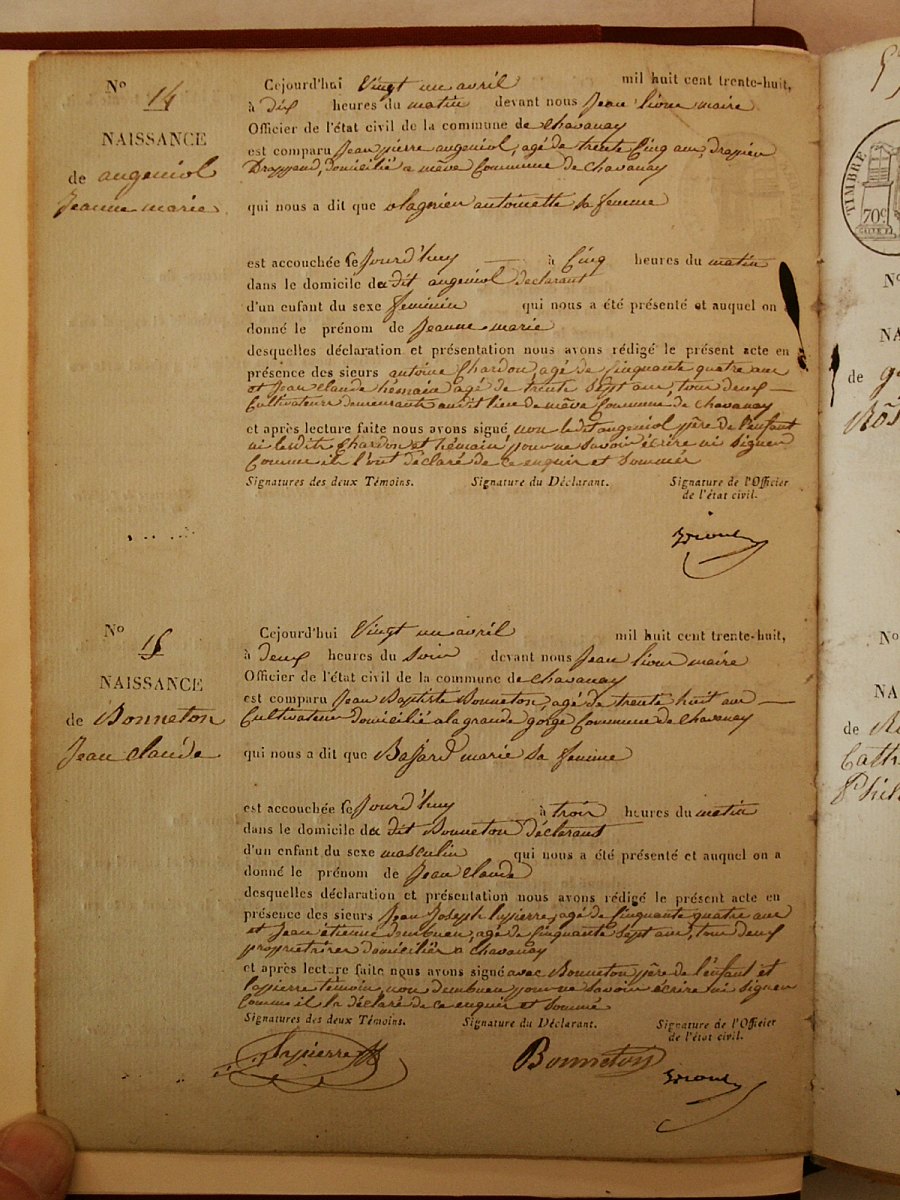 Nº 14
NAISSANCE
de augeniol
Jeanne marie
Cejourd'hui Vingt un avril mil huit cent trente-huit,
à dix heures du matin devant nous Jean lioue maire
Officier de l'état civil de la commune de chavanay
est comparu Jean pierre augeniol, agé de trente Cinq ans,
domicilié a même Commune de chavanay
qui nous a dit que antoinette sa femme
est accouchée ce Jourd'huy à Cinq heures du matin
dans le domicile du dit augeniol déclarant
d'un enfant du sexe feminin qui nous a été présenté et auquel on a
donné le prénom de Jeanne marie
desquelles déclaration et présentation nous avons rédigé le présent acte en
présence des sieurs antoine Chardon, agé de Cinquante quatre ans
et Jean Claude hémain agé de trente Sept ans, tous deux
Cultivateurs demeurants audit lieu de même Commune de chavanay
et après lecture faite nous avons signé non ledit augeniol père de l'enfant
ni lesdits Chardon et hémain, pour ne savoir écrire ni signer
Comme ils l'ont déclaré de ce enquis et Sommés
Signatures des deux Témoins. Signature du Déclarant. Signature de l'Officier
de l'état civil.
Nº 15
NAISSANCE
de Bonneton
Jean claude
Cejourd'hui Vingt un avril mil huit cent trente-huit,
à deux heures du soir devant nous Jean lioue maire
Officier de l'état civil de la commune de chavanay
est comparu Jean Baptiste Bonneton, agé de trente huit ans
Cultivateur domicilié a la grande gorge Commune de chavanay
qui nous a dit que Bassard marie sa femme
est accouchée ce Jourd'huy à trois heures du matin
dans le domicile du dit Bonneton déclarant
d'un enfant du sexe masculin qui nous a été présenté et auquel on a
donné le prénom de Jean claude
desquelles déclaration et présentation nous avons rédigé le présent acte en
présence des sieurs Jean Joseph lapierre, agé de Cinquante quatre ans
et Jean étienne dembuen, agé de Cinquante Sept ans, tous deux
propriétaires domiciliés à chavanay
et après lecture faite nous avons signé avec Bonneton père de l'enfant et
lapierre témoin, non dembuen pour ne savoir écrire ni signer
Comme il la déclaré de ce enquis et Sommé
Signatures des deux Témoins. Signature du Déclarant. Signature de l'Officier
de l'état civil.
lapierre Bonneton
TIMBRE
70c
Nº
NA
de
Nº
NA
de
Cath
Phil